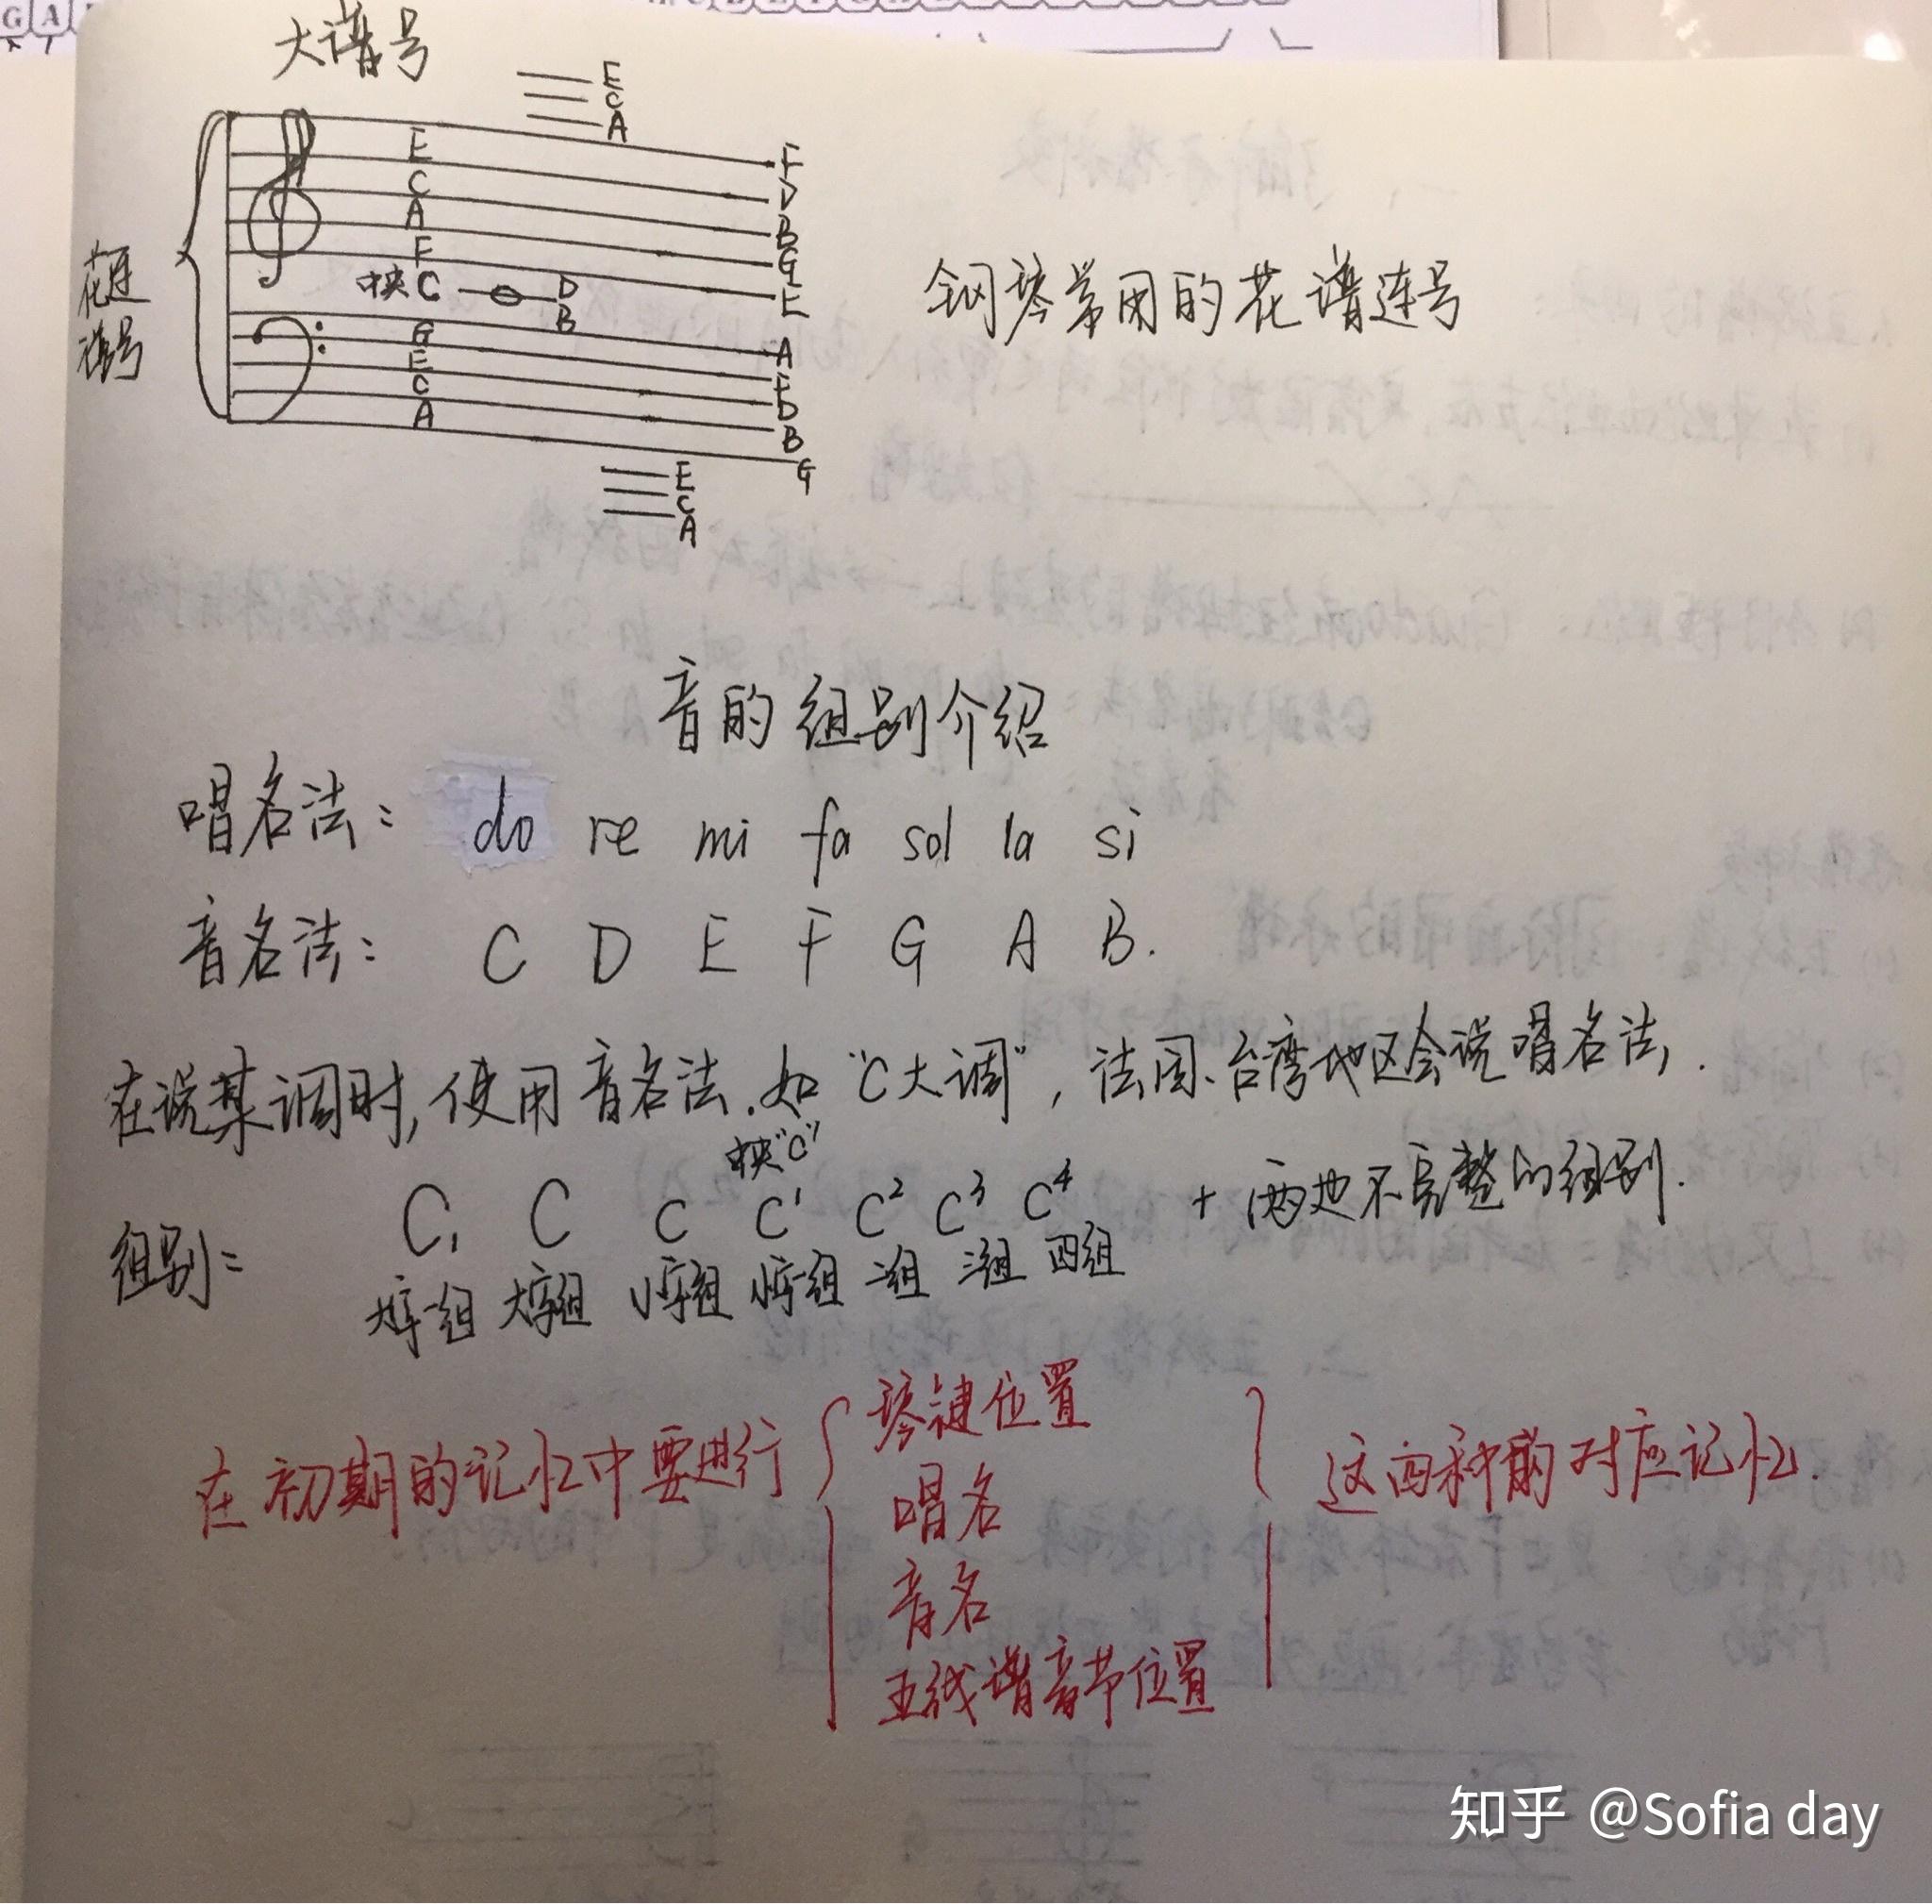 G A
大谱号
E
C
A
E
C
A
F
F
D
B
G
E
中央C
D
B
花连
谱号
钢琴常用的花谱连号
G
E
C
A
A
F
D
B
G
E
C
A
音的组别介绍
唱名法: do re mi fa sol la si
音名法: C D E F G A B.
在说某调时,使用音名法.如"C大调",法国、台湾地区会说唱名法,.
中央"C"
组别: C₁ C c c¹ c² c³ c⁴ + 两边不完整的组别.
大字一组 大字组 小字组 小字一组 二组 三组 四组
在初期的记忆中要进行
琴键位置
唱名
音名
五线谱音节位置
这四种的对应记忆.
知乎 @Sofia day